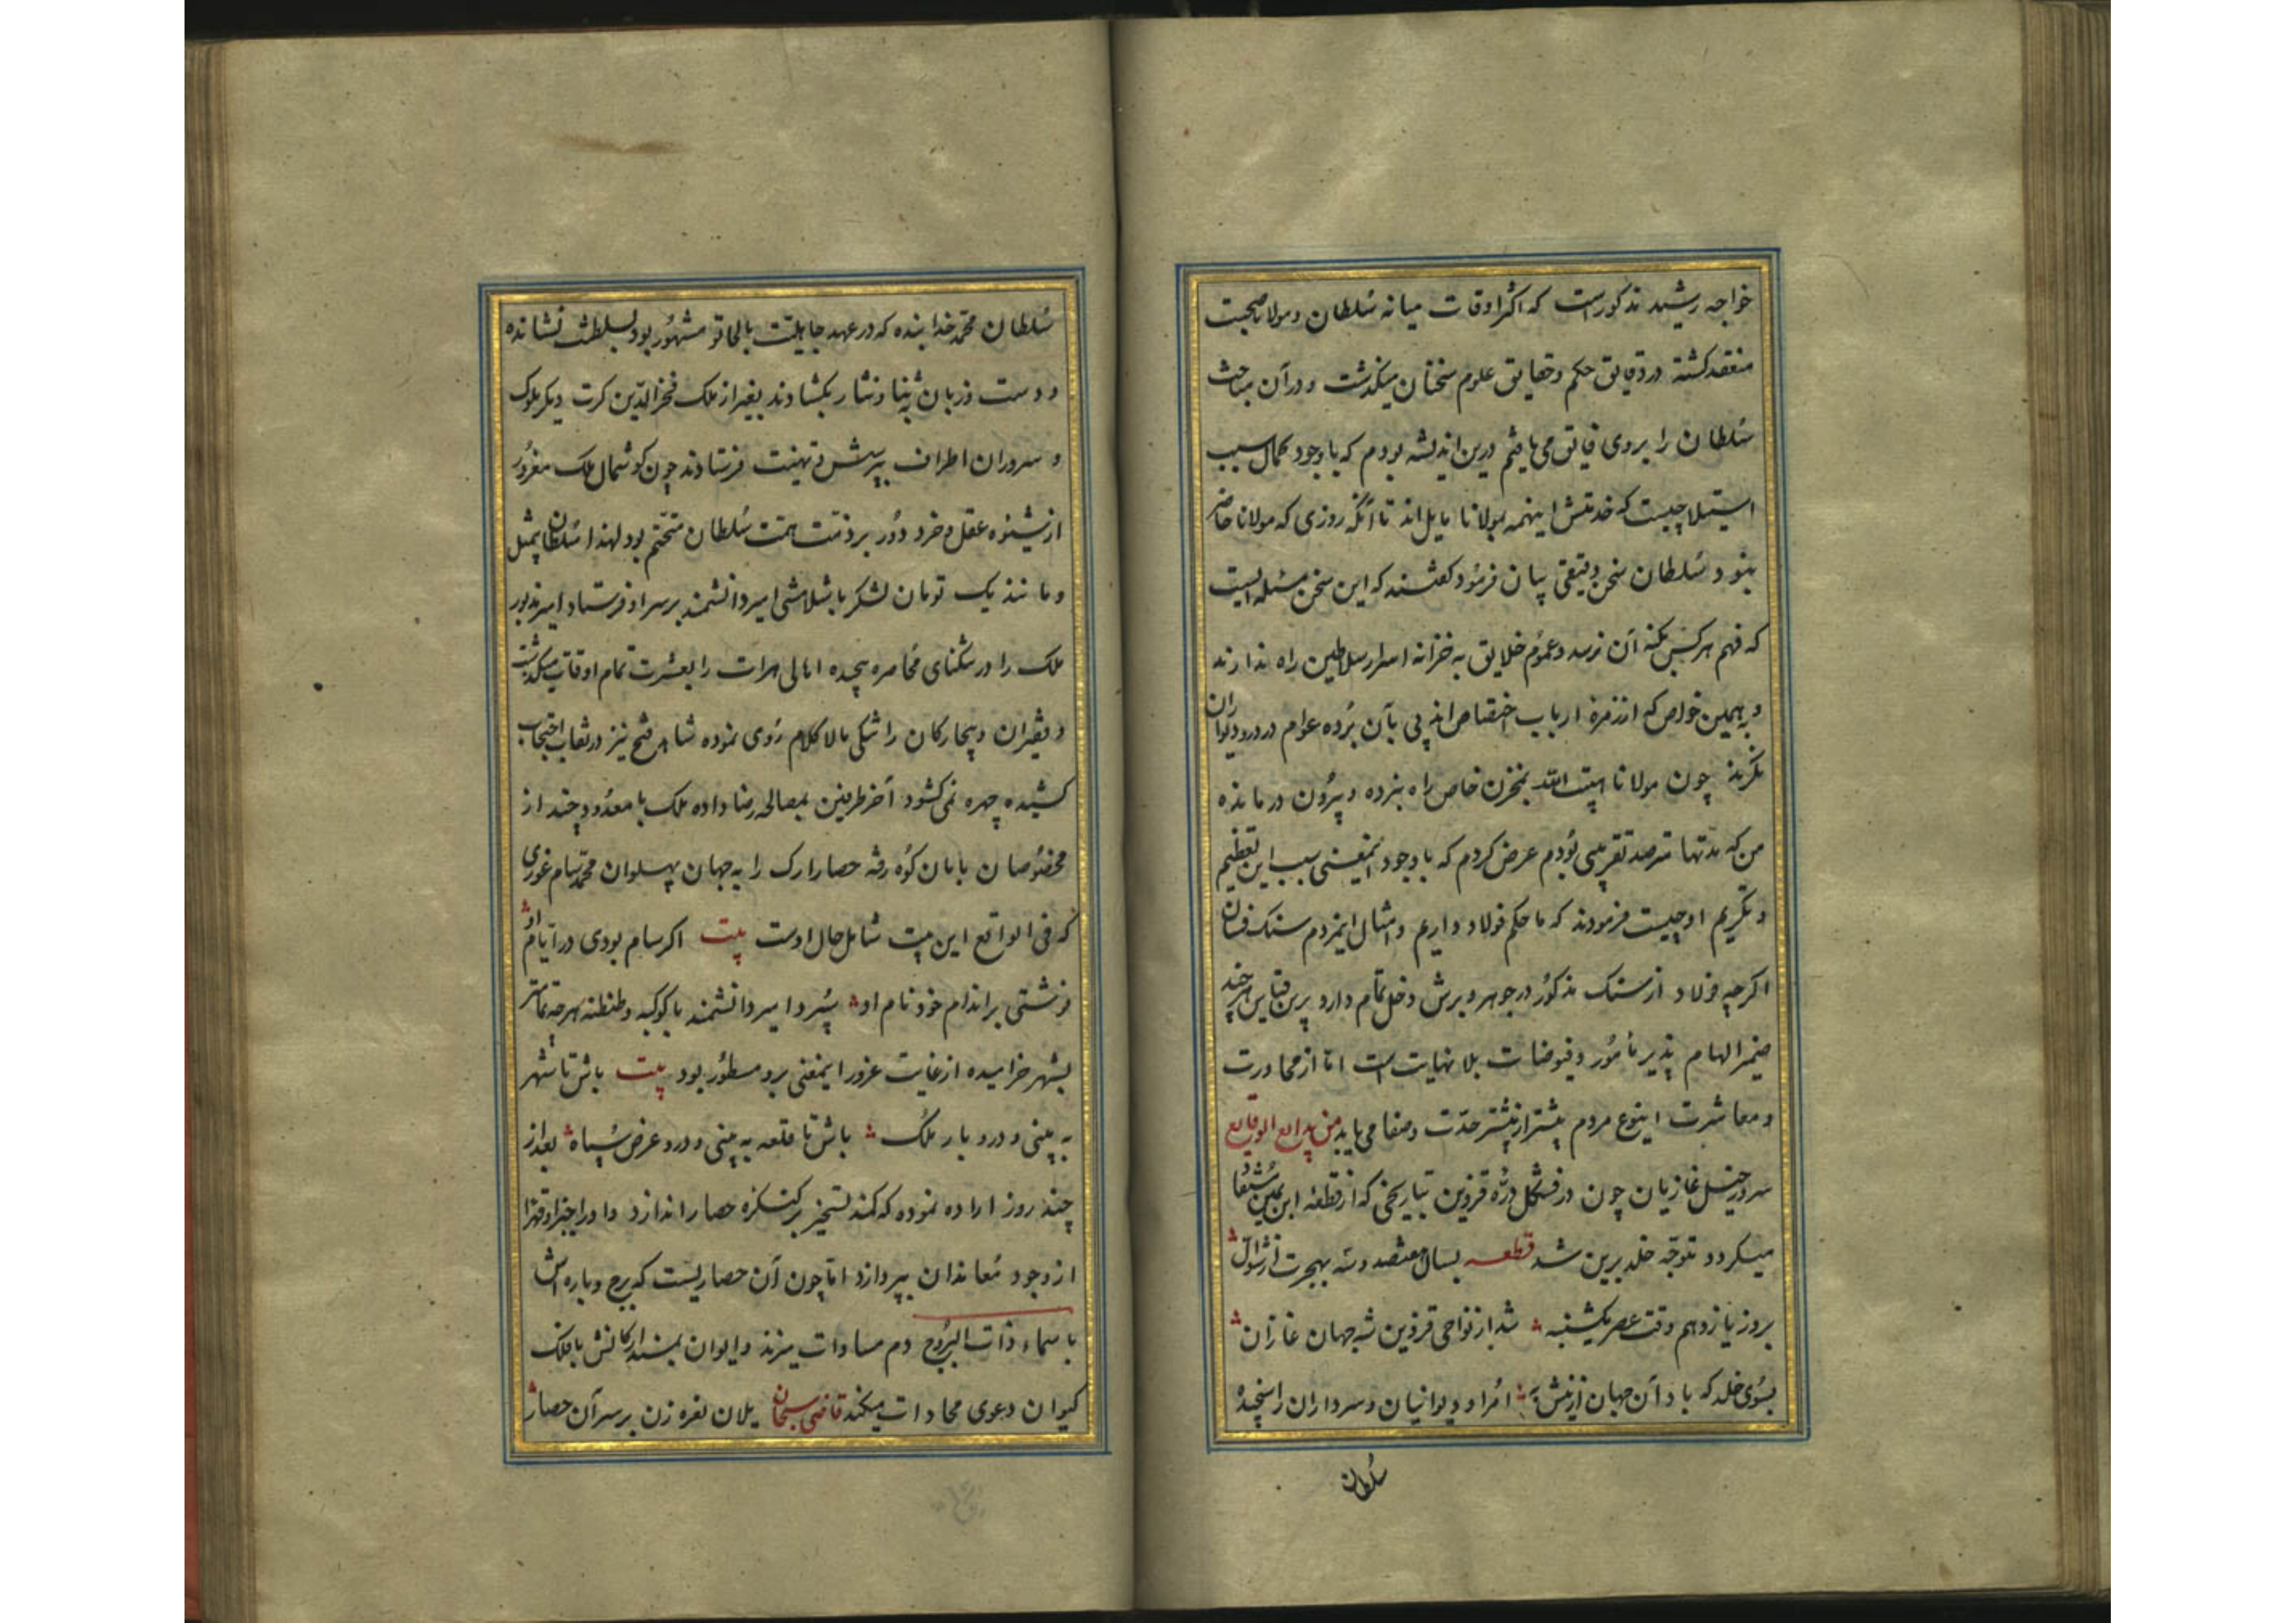 خواجه رشید مذکورست که اکثر اوقات میانه سُلطان و مولانا صحبت
منعقد کشته در دقایق حکم و حقایق علوم سخنان میکذشت و در آن مباحث
سُلطان را بروی فایق می یافتم درین اندیشه بودم که با وجود کمال سبب
استیلا چیست که خدمتش اینهمه بمولانا مایل اند تا آنکه روزی که مولانا حاضر
بنود سُلطان سخن دقیقی بیان فرمود کفتند که این سخن مسئله ایست
که فهم هر کس بکنه آن نرسد و عموم خلایق به خزانه اسرار سلاطین راه ندارند
و بهمین خواص که از زمرهٔ ارباب اختصاص اند پی بآن بُرده عوام در درو دیوار آن
نکرند چون مولانا هیبت الله بمخزن خاص راه نبرده و بیرون در مانده
من که مدتها مترصد تقریبی بودم عرض کردم که با وجود اینمعنی سبب این تعظیم
و تکریم او چیست فرمودند که ما حکم فولاد داریم و امثال اینمردم سنک فسان
اکرچه فولاد از سنک مذکور در جوهر و برش دخل تمام دارد برین قیاس هر چند
ضمیر الهام پذیر مأمور و فیوضات بلا نهایت است اما از محاورت
و معاشرت اینوع مردم بیشتر از پیشتر حدّت و صفا می یابد من بدایع الوقایع
سرور خیل غازیان چون در فشکل درهٔ قزوین بتاریخی که از قطعه ابن یمین مُستفا
میکردد متوجّه خلد برین شد قطعه بسال هفتصد و سه بهجرت از شوّال
بروز یازدهم وقت عصر یکشنبه شد از نواحی قزوین شه جهان غازان
بسُوی خلد که باد آن جهان ازینش به امرا و دیوانیان و سرداران
سُلطان
سُلطان محمّد خدابنده که در عهد جاهلیّت بالجاتو مشهور بود بسلطنت نشانده
و دست و زبان بثنا و نثار بکشادند بغیر از ملک فخرالدین کرت دیکر ملوک
و سروران اطراف بپرسش و تهنیت فرستادند چون کوشمال ملک مغرور
از شیوهٔ عقل و خرد دُور بر ذمّت همّت سُلطان متحتّم بود لهذا سُلطان بمثل
و مانند یک تومان لشکر باشلامشی امیر دانشمند بر سر او فرستاد امیر مزبور
ملک را در تنکنای محاصره پیچیده اهالی هرات را بعسرت تمام اوقات میکذشت
و فقیران و بیچارکان را تنکی مالاکلام روی نموده شاهد فتح نیز در نقاب احتجاب
کشیده چهره نمی کشود آخر طرفین بمصالحه رضا داده ملک با معدودی چند از
مخصوصان بامان کوُه رفته حصار ارک را به جهان پهلوان محمّد سام غوری
که فی الواقع این بیت شامل حال اوست بیت اکر سام بودی در ایام او
نوشتی بر اندام خود نام او سپرد امیر دانشمند با کوکبه و طنطنه هر چه تمامتر
بشهر خرامیده از غایت غرور اینمعنی برو مسطور بود بیت باش تا شهر
به بینی و درو بار ملک باش تا قلعه به بینی و درو عرض سپاه بعد از
چند روز اراده نموده که کمند تسخیر بر کنکره حصار اندازد
از وجود مُعاندان بپردازد اما چون آن حصاریست که برج و باره اش
با سماء ذات البروُج دم مساوات میزند و ایوان بلند ارکانش با فلک
کیوان دعوی محاذات میکند قاضی سبحان یلان نعره زن بر سر آن حصار